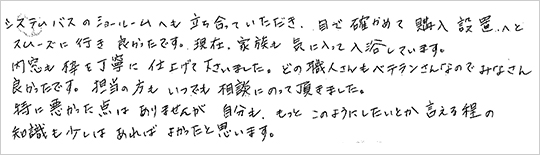 システムバスのショールームへも立ち合っていただき、目で確かめて購入設置へと
スムーズに行き良かったです。現在、家族も気に入って入浴しています。
内窓も枠を丁寧に仕上げて下さいました。どの職人さんもベテランさんなのでみなさん
良かったです。担当の方もいつでも相談にのって頂きました。
特に悪かった点はありませんが自分も、もっとこのようにしたいとか言える程の
知識も少しはあればよかったと思います。